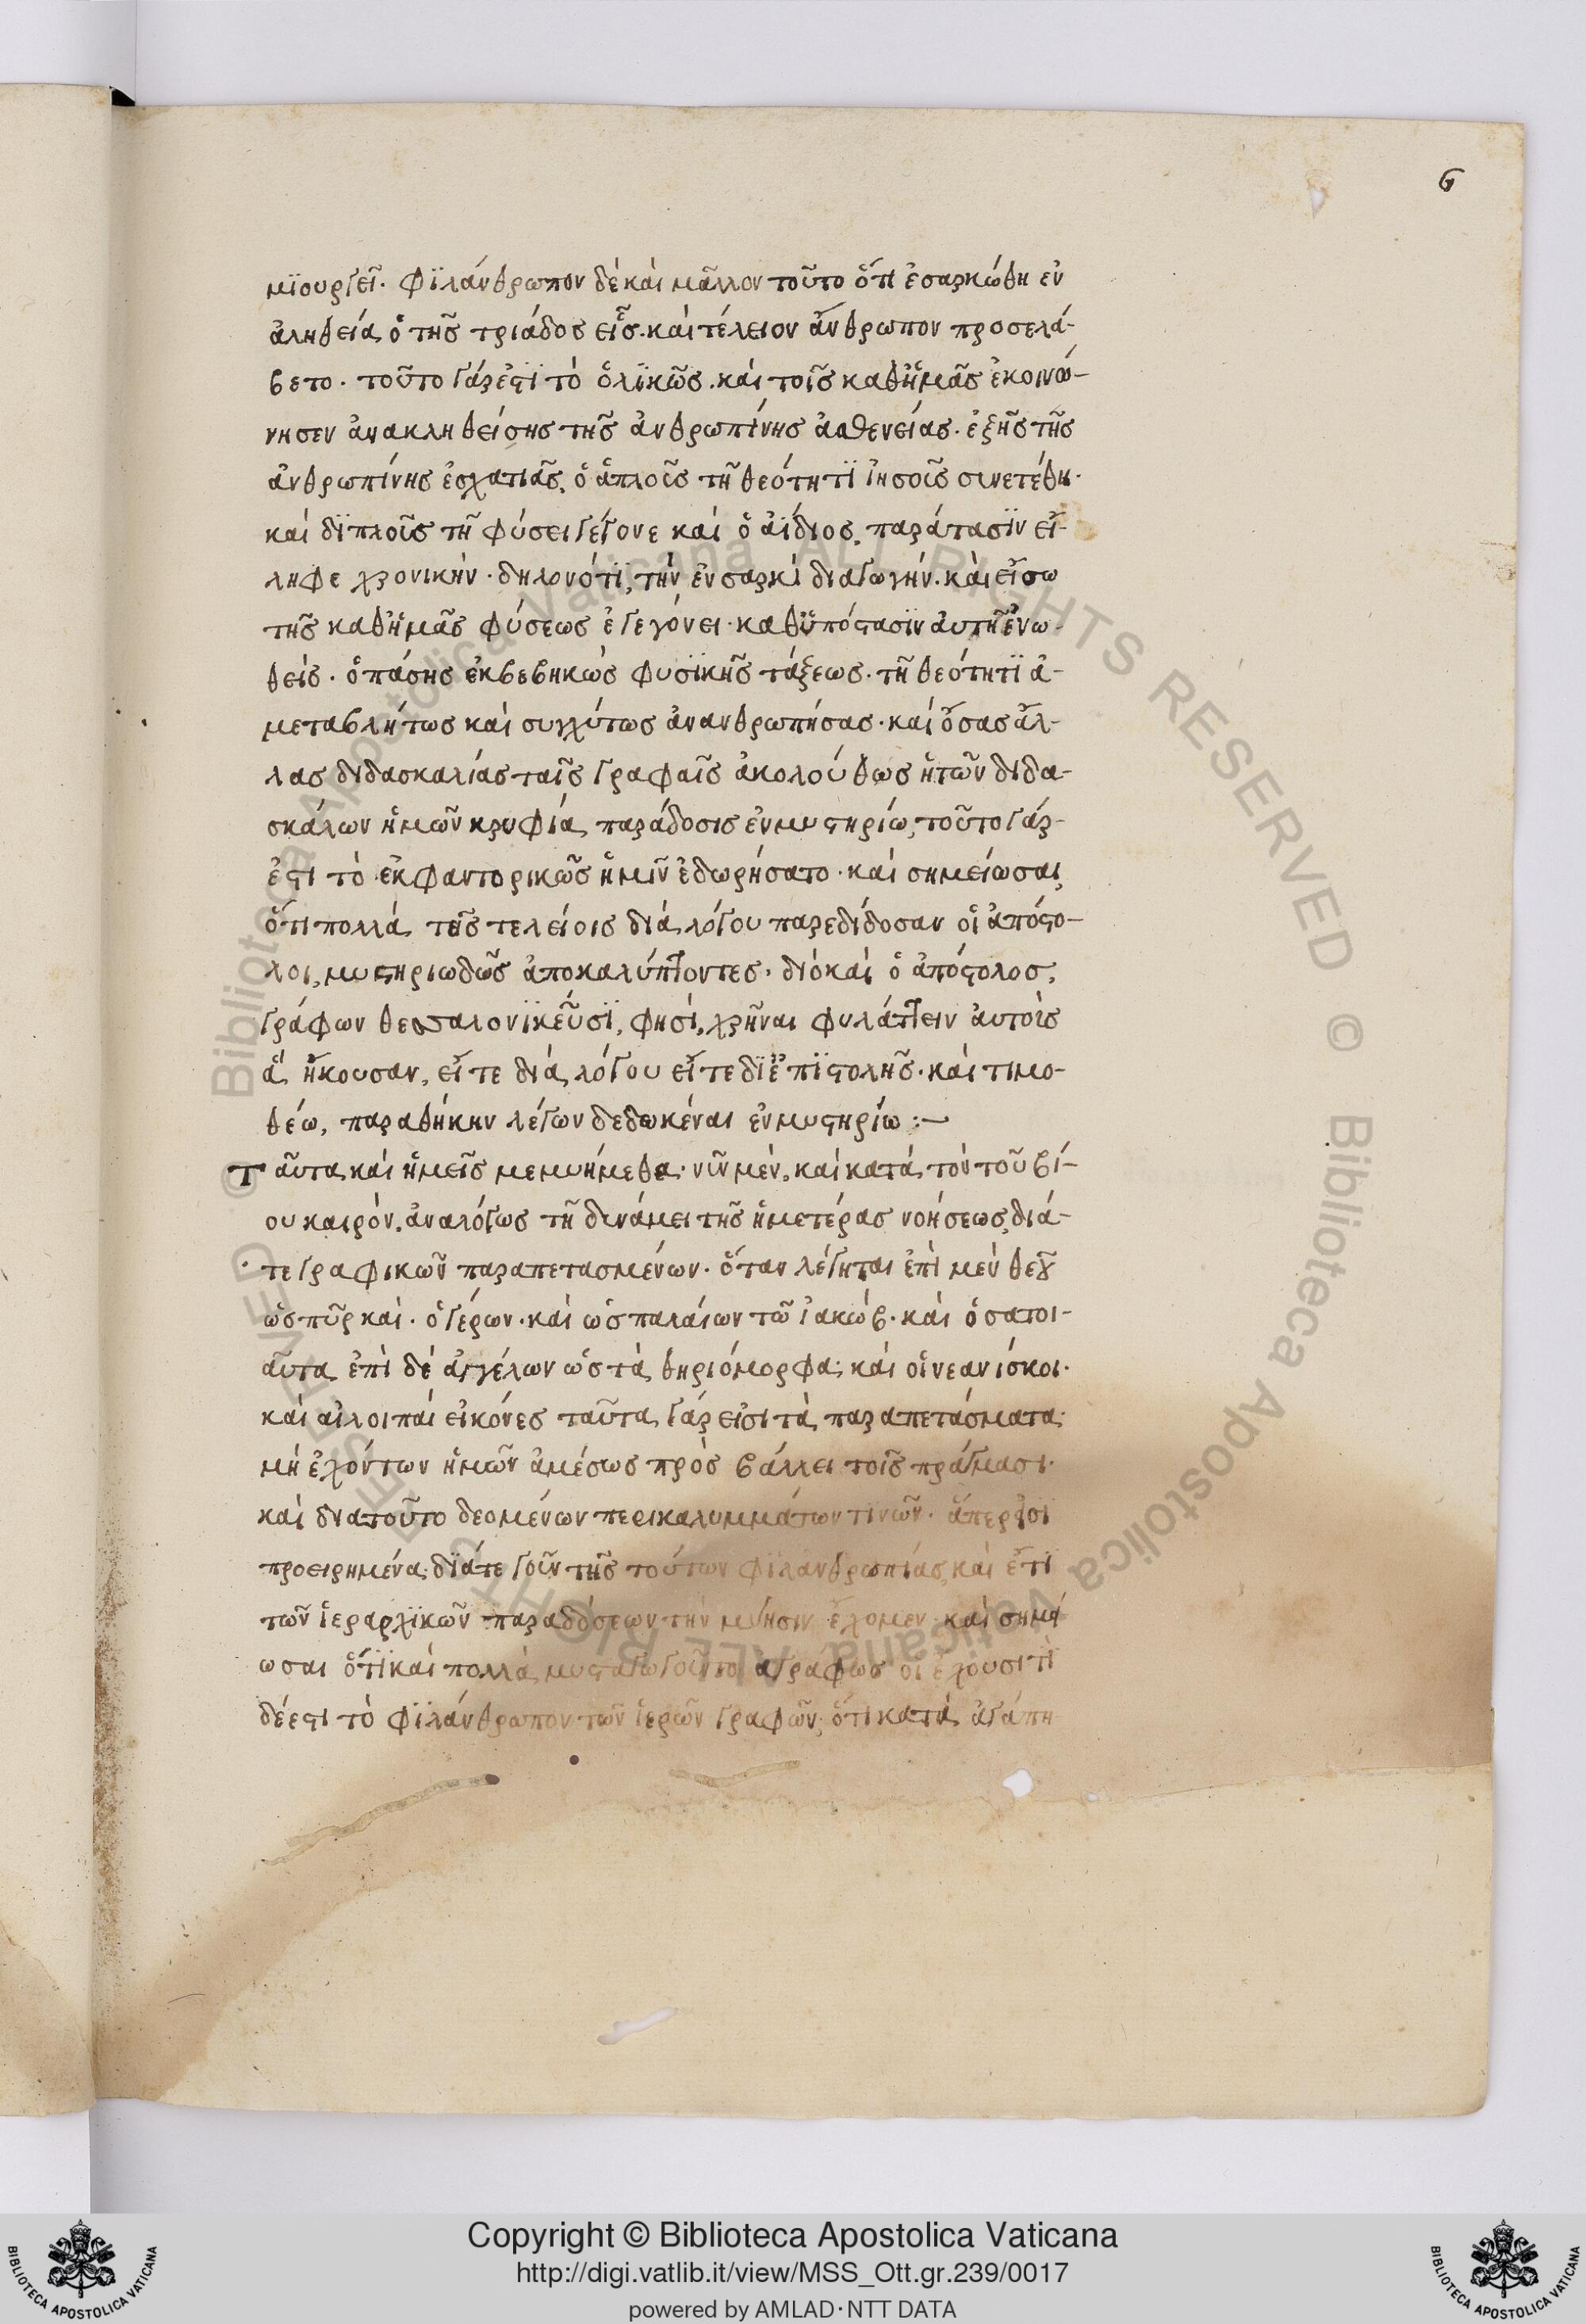 6
μϊουργεῖ· φϊλάνθρωπον δὲ καὶ μᾶλλον τοῦτο ὅτι ἐσαρκώθη ἐν
ἀληθεία, ὁ τῆς τριάδος εἷς. καὶ τέλειον ἄνθρωπον προσελά-
βετο. τοῦτο γάρ ἐστϊ τὸ ὁλϊκῶς. καὶ τοῖς καθ' ἡμᾶς ἐκοινώ-
νησεν ἀνακληθείσης τῆς ἀνθρωπίνης ἀσθενείας. ἐξ ἧς τῆς
ἀνθρωπίνης ἐσχατιᾶς, ὁ ἁπλοῦς τῆ θεότητϊ ἰησοῦς συνετέθη·
καὶ δϊπλοῦς τῆ φύσει γέγονε καὶ ὁ ἀΐδιος, παράτασϊν εἴ-
ληφε χρονικήν. δηλονότϊ, τὴν ἐν σαρκὶ διαγωγήν. καὶ εἴσω
τῆς καθ' ἡμᾶς φύσεως ἐγεγόνει· καθϋπόστασϊν αὐτῆ ἑνω-
θείς. ὁ πάσης ἐκβεβηκὼς φυσϊκῆς τάξεως. τῆ θεότητϊ ἀ-
μεταβλήτως καὶ συγχύτως ἀνανθρωπήσας. καὶ ὅσας ἄλ-
λας διδασκαλίας ταῖς γραφαῖς ἀκολούθως ἡ τῶν διδα-
σκάλων ἡμῶν κρυφία, παράδοσις ἐν μυστηρίω, τοῦτο γάρ-
ἐστι τὸ ἐκφαντορικῶς ἡμῖν ἐδωρήσατο. καὶ σημείωσαι,
ὅτι πολλά, τοῖς τελείοις διὰ λόγου παρεδίδοσαν οἱ ἀπόστο-
λοι, μυστηριωδῶς ἀποκαλύπτοντες. διὸ καὶ ὁ ἀπόστολος,
γράφων θεσσαλονϊκεῦσϊ, φησί, χρῆναι φυλάττειν αὐτοὶς
ἃ ἤκουσαν, εἴτε διὰ λόγου εἴτε δϊ ἐπϊστολῆς. καὶ τιμο-
θέω, παραθήκην λέγων δεδωκέναι ἐν μυστηρίω :—
Ταῦτα καὶ ἡμεῖς μεμυήμεθα· νῦν μέν, καὶ κατὰ τὸν τοῦ βί-
ου καιρόν. ἀναλόγως τῆ δυνάμει τῆς ἡμετέρας νοήσεως, διά-
τε γραφικῶν παραπετασμένων. ὅταν λέγηται ἐπὶ μὲν θεοῦ
ὡς πῦρ καὶ. ὁ γέρων. καὶ ὡς παλαίων τῶ ἰακώβ. καὶ ὅσα τοι-
αῦτα, ἐπὶ δὲ ἀγγέλων ὡς τὰ θηριόμορφα; καὶ οἱ νεανίσκοι.
καὶ αἱ λοιπαὶ εἰκόνες ταῦτα γάρ εἰσι τὰ παραπετάσματα·
μὴ ἐχόντων ἡμῶν ἀμέσως πρὸς βάλλει τοῖς πράγμασι.
καὶ διατοῦτο δεομένων περικαλυμμάτων τινῶν. ἅπερ εἰσϊ
προειρημένα, δϊάτε γοῦν τῆς τούτων φϊλανθρωπίας, καὶ ἔτϊ
τῶν ἱεραρχϊκῶν παραδόσεων τὴν μύησιν ἔχομεν. καὶ σημεί
ωσαι ὅτϊ καὶ πολλὰ μυσταγωγοῦντο ἀγράφως οἱ ἔχουσι τϊ
δέ ἐστι τὸ φϊλάνθρωπον τῶν ἱερῶν γραφῶν, ὅτι κατὰ ἀγάπη
Copyright © Biblioteca Apostolica Vaticana
http://digi.vatlib.it/view/MSS_Ott.gr.239/0017
powered by AMLAD·NTT DATA